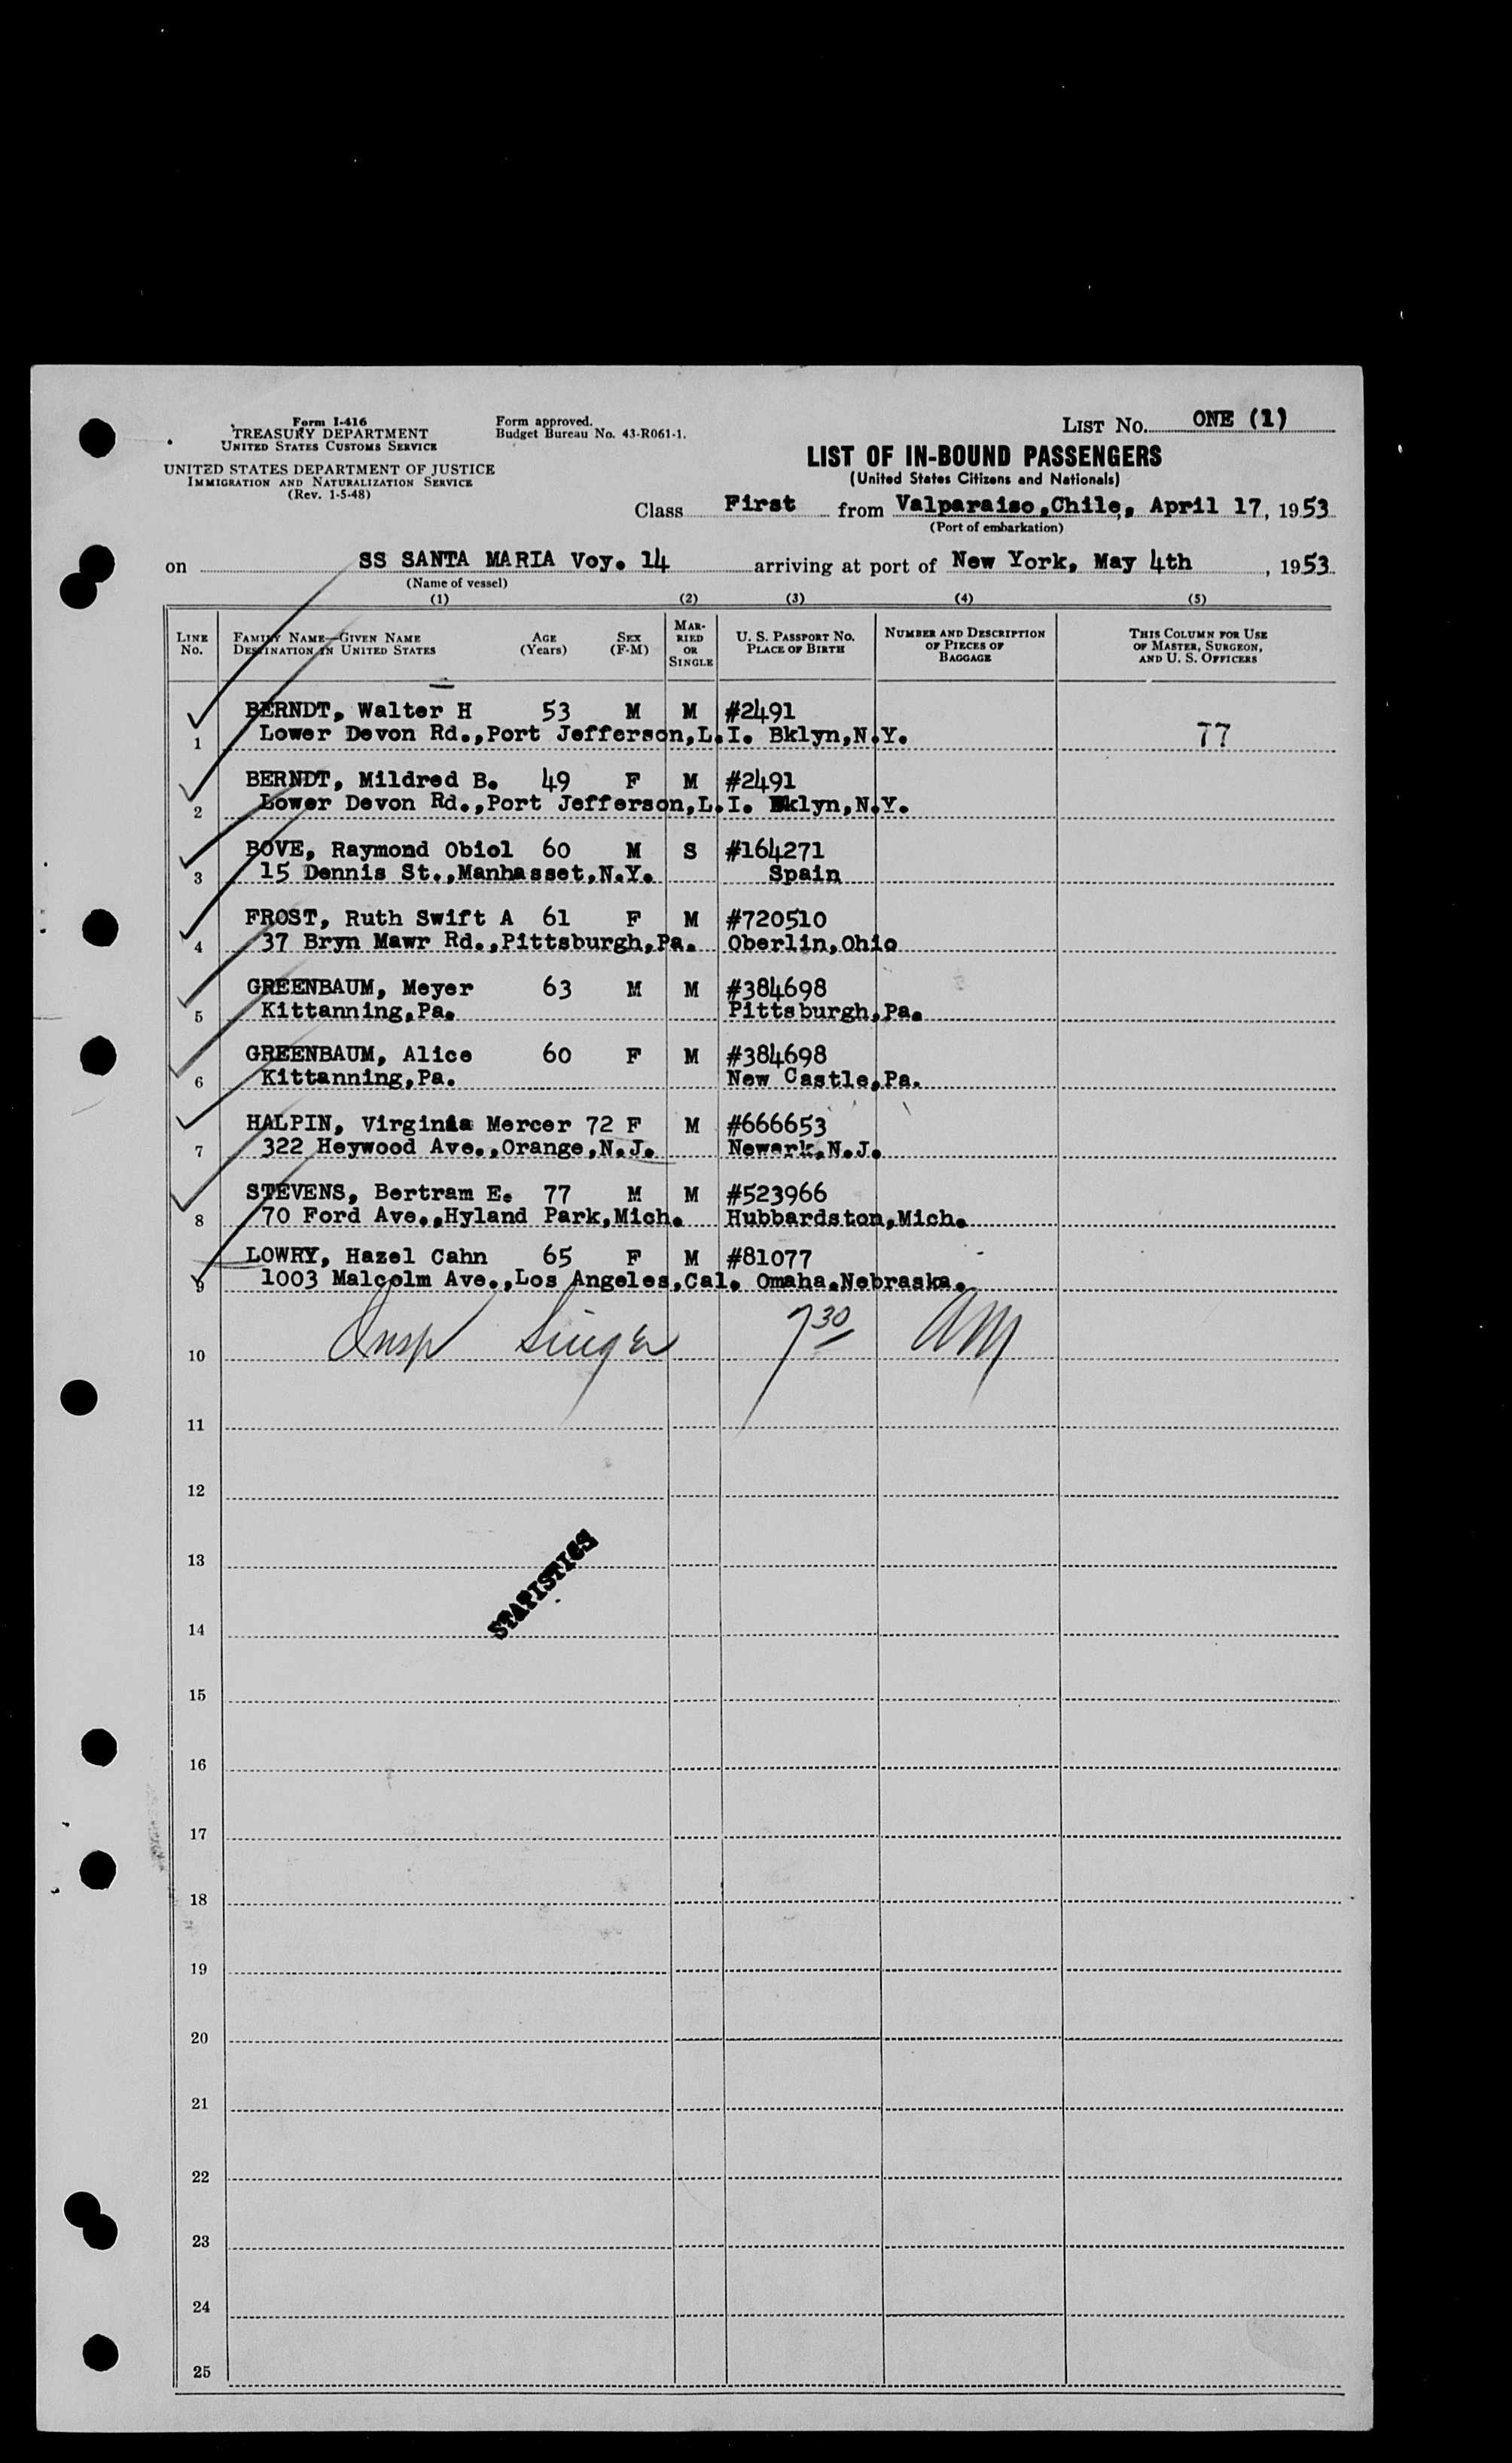 Form I-416
TREASURY DEPARTMENT
UNITED STATES CUSTOMS SERVICE
UNITED STATES DEPARTMENT OF JUSTICE
IMMIGRATION AND NATURALIZATION SERVICE
(Rev. 1-5-48)
Form approved.
Budget Bureau No. 43-R061-1.
LIST No. ONE (1)
LIST OF IN-BOUND PASSENGERS
(United States Citizens and Nationals)
Class First from Valparaiso,Chile, April 17, 1953
(Port of embarkation)
on SS SANTA MARIA Voy. 14 arriving at port of New York, May 4th, 1953
(Name of vessel)
(1) (2) (3) (4) (5)
LINE No. FAMILY NAME—GIVEN NAME DESTINATION IN UNITED STATES AGE (Years) SEX (F-M) MARRIED OR SINGLE U. S. PASSPORT NO. PLACE OF BIRTH NUMBER AND DESCRIPTION OF PIECES OF BAGGAGE THIS COLUMN FOR USE OF MASTER, SURGEON, AND U. S. OFFICERS
BERNDT, Walter H 53 M M #2491
1 Lower Devon Rd.,Port Jefferson,L.I. Bklyn,N.Y. 77
BERNDT, Mildred B. 49 F M #2491
2 Lower Devon Rd.,Port Jefferson,L.I. Bklyn,N.Y.
BOVE, Raymond Obiol 60 M S #164271
3 15 Dennis St.,Manhasset,N.Y. Spain
FROST, Ruth Swift A 61 F M #720510
4 37 Bryn Mawr Rd.,Pittsburgh,Pa. Oberlin,Ohio
GREENBAUM, Meyer 63 M M #384698
5 Kittanning,Pa. Pittsburgh,Pa.
GREENBAUM, Alice 60 F M #384698
6 Kittanning,Pa. New Castle,Pa.
HALPIN, Virginia Mercer 72 F M #666653
7 322 Heywood Ave.,Orange,N.J. Newark,N.J.
STEVENS, Bertram E. 77 M M #523966
8 70 Ford Ave.,Hyland Park,Mich. Hubbardston,Mich.
LOWRY, Hazel Cahn 65 F M #81077
9 1003 Malcolm Ave.,Los Angeles,Cal. Omaha.Nebraska.
10 Insp Singer 7 30 AM
11
12
13
STATISTICS
14
15
16
17
18
19
20
21
22
23
24
25